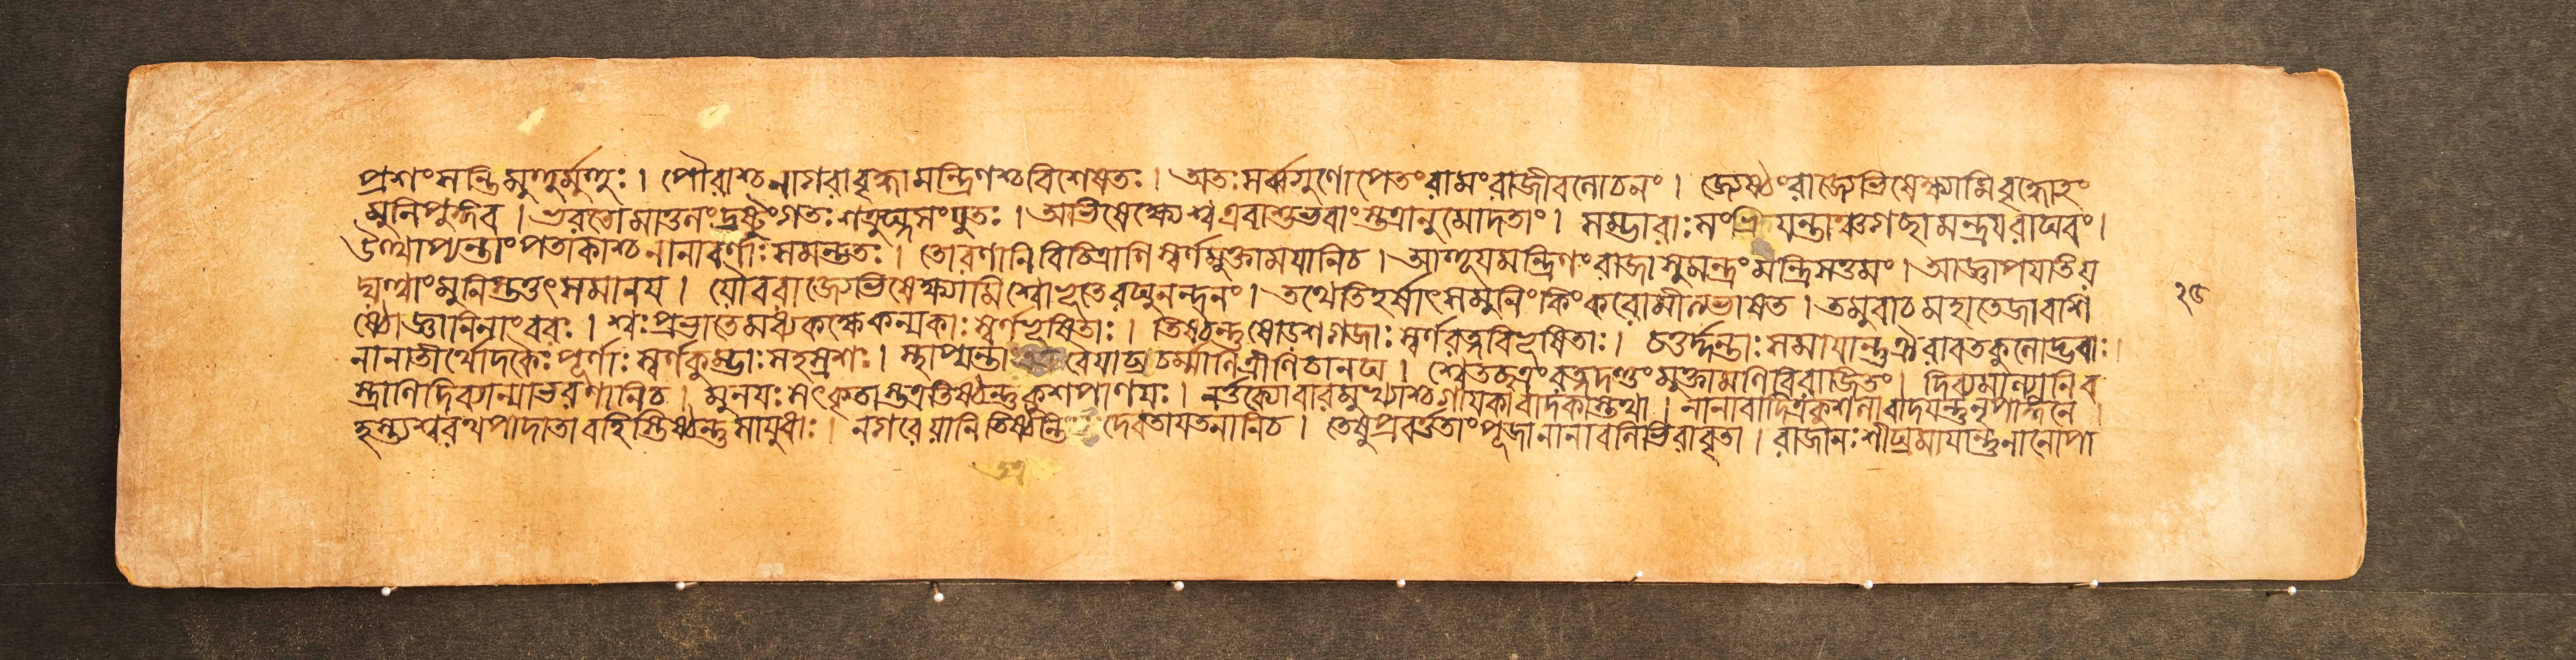 প্রশংসন্তিমুহুর্মুহুঃ। পৌরাশ্চনাগরাবৃদ্ধামন্ত্রিণশ্চবিশেষতঃ। অতঃসর্ব্বগুণোপেতংরামংরাজীবলোচনং। জ্যেষ্ঠংরাজ্যেভিষেক্ষ্যামিবৃদ্ধোহং
মুনিপুঙ্গব। ভরতোমাতুলংদ্রষ্টুংগতঃশত্রুঘ্নসংযুতঃ। অভিষেক্ষ্যেশ্বএবাশুভবাংস্তত্রানুমোদতাং। সম্ভারাঃসংভ্রিয়ন্তাঞ্চগচ্ছামন্ত্রয়রাঘবং।
উত্থাপ্যন্তাংপতাকাশ্চনানাবর্ণাঃসমন্ততঃ। তোরণানিবিচিত্রাণিস্বর্ণমুক্তাময়ানিচ। আহূয়মন্ত্রিণংরাজাসুমন্ত্রংমন্ত্রিসত্তমং। আজ্ঞাপয়তিয়
দ্যত্ত্বাংমুনিস্তত্তৎসমানয়। যৌবরাজ্যেভিষেক্ষ্যামিশ্বোভূতেরঘুনন্দনং। তথেতিহর্ষাৎসমুনিংকিংকরোমীত্যভাষত। তমুবাচমহাতেজাবশি
ষ্ঠোজ্ঞানিনাংবরঃ। শ্বঃপ্রভাতেমধ্যকক্ষেকন্যকাঃস্বর্ণভূষিতাঃ। তিষ্ঠন্তুষোডশগজাঃস্বর্ণরত্নবিভূষিতাঃ। চতুর্দ্দন্তাঃসমায়ান্তুঐরাবতকুলোদ্ভবাঃ।
নানাতীর্থোদকৈঃপূর্ণাঃস্বর্ণকুম্ভাঃসহস্রশঃ। স্থাপ্যন্তাং বৈয়াঘ্রচর্ম্মাণিত্রীণিচানয়। শ্বেতচ্ছত্রংরত্নদণ্ডংমুক্তামণিবিরাজিতং। দিব্যমাল্যানিব
স্ত্রাণিদিব্যান্যাভরণানিচ। মুনয়ঃসৎকৃতাস্তত্রতিষ্ঠন্তুকুশপাণয়ঃ। নর্ত্তক্যোবারমুখ্যাশ্চগায়কাবাদকাস্তথা। নানাবাদিত্রকুশলাবাদয়ন্তুনৃপাঙ্গনে।
হস্ত্যশ্বরথপাদাতাবহিস্তিষ্ঠন্তুসায়ুধাঃ। নগরেয়ানিতিষ্ঠন্তি দেবতায়তনানিচ। তেষুপ্রবর্ত্ততাংপূজানানাবলিভিরাবৃতা। রাজানঃশীঘ্রমায়ান্তুনানোপা